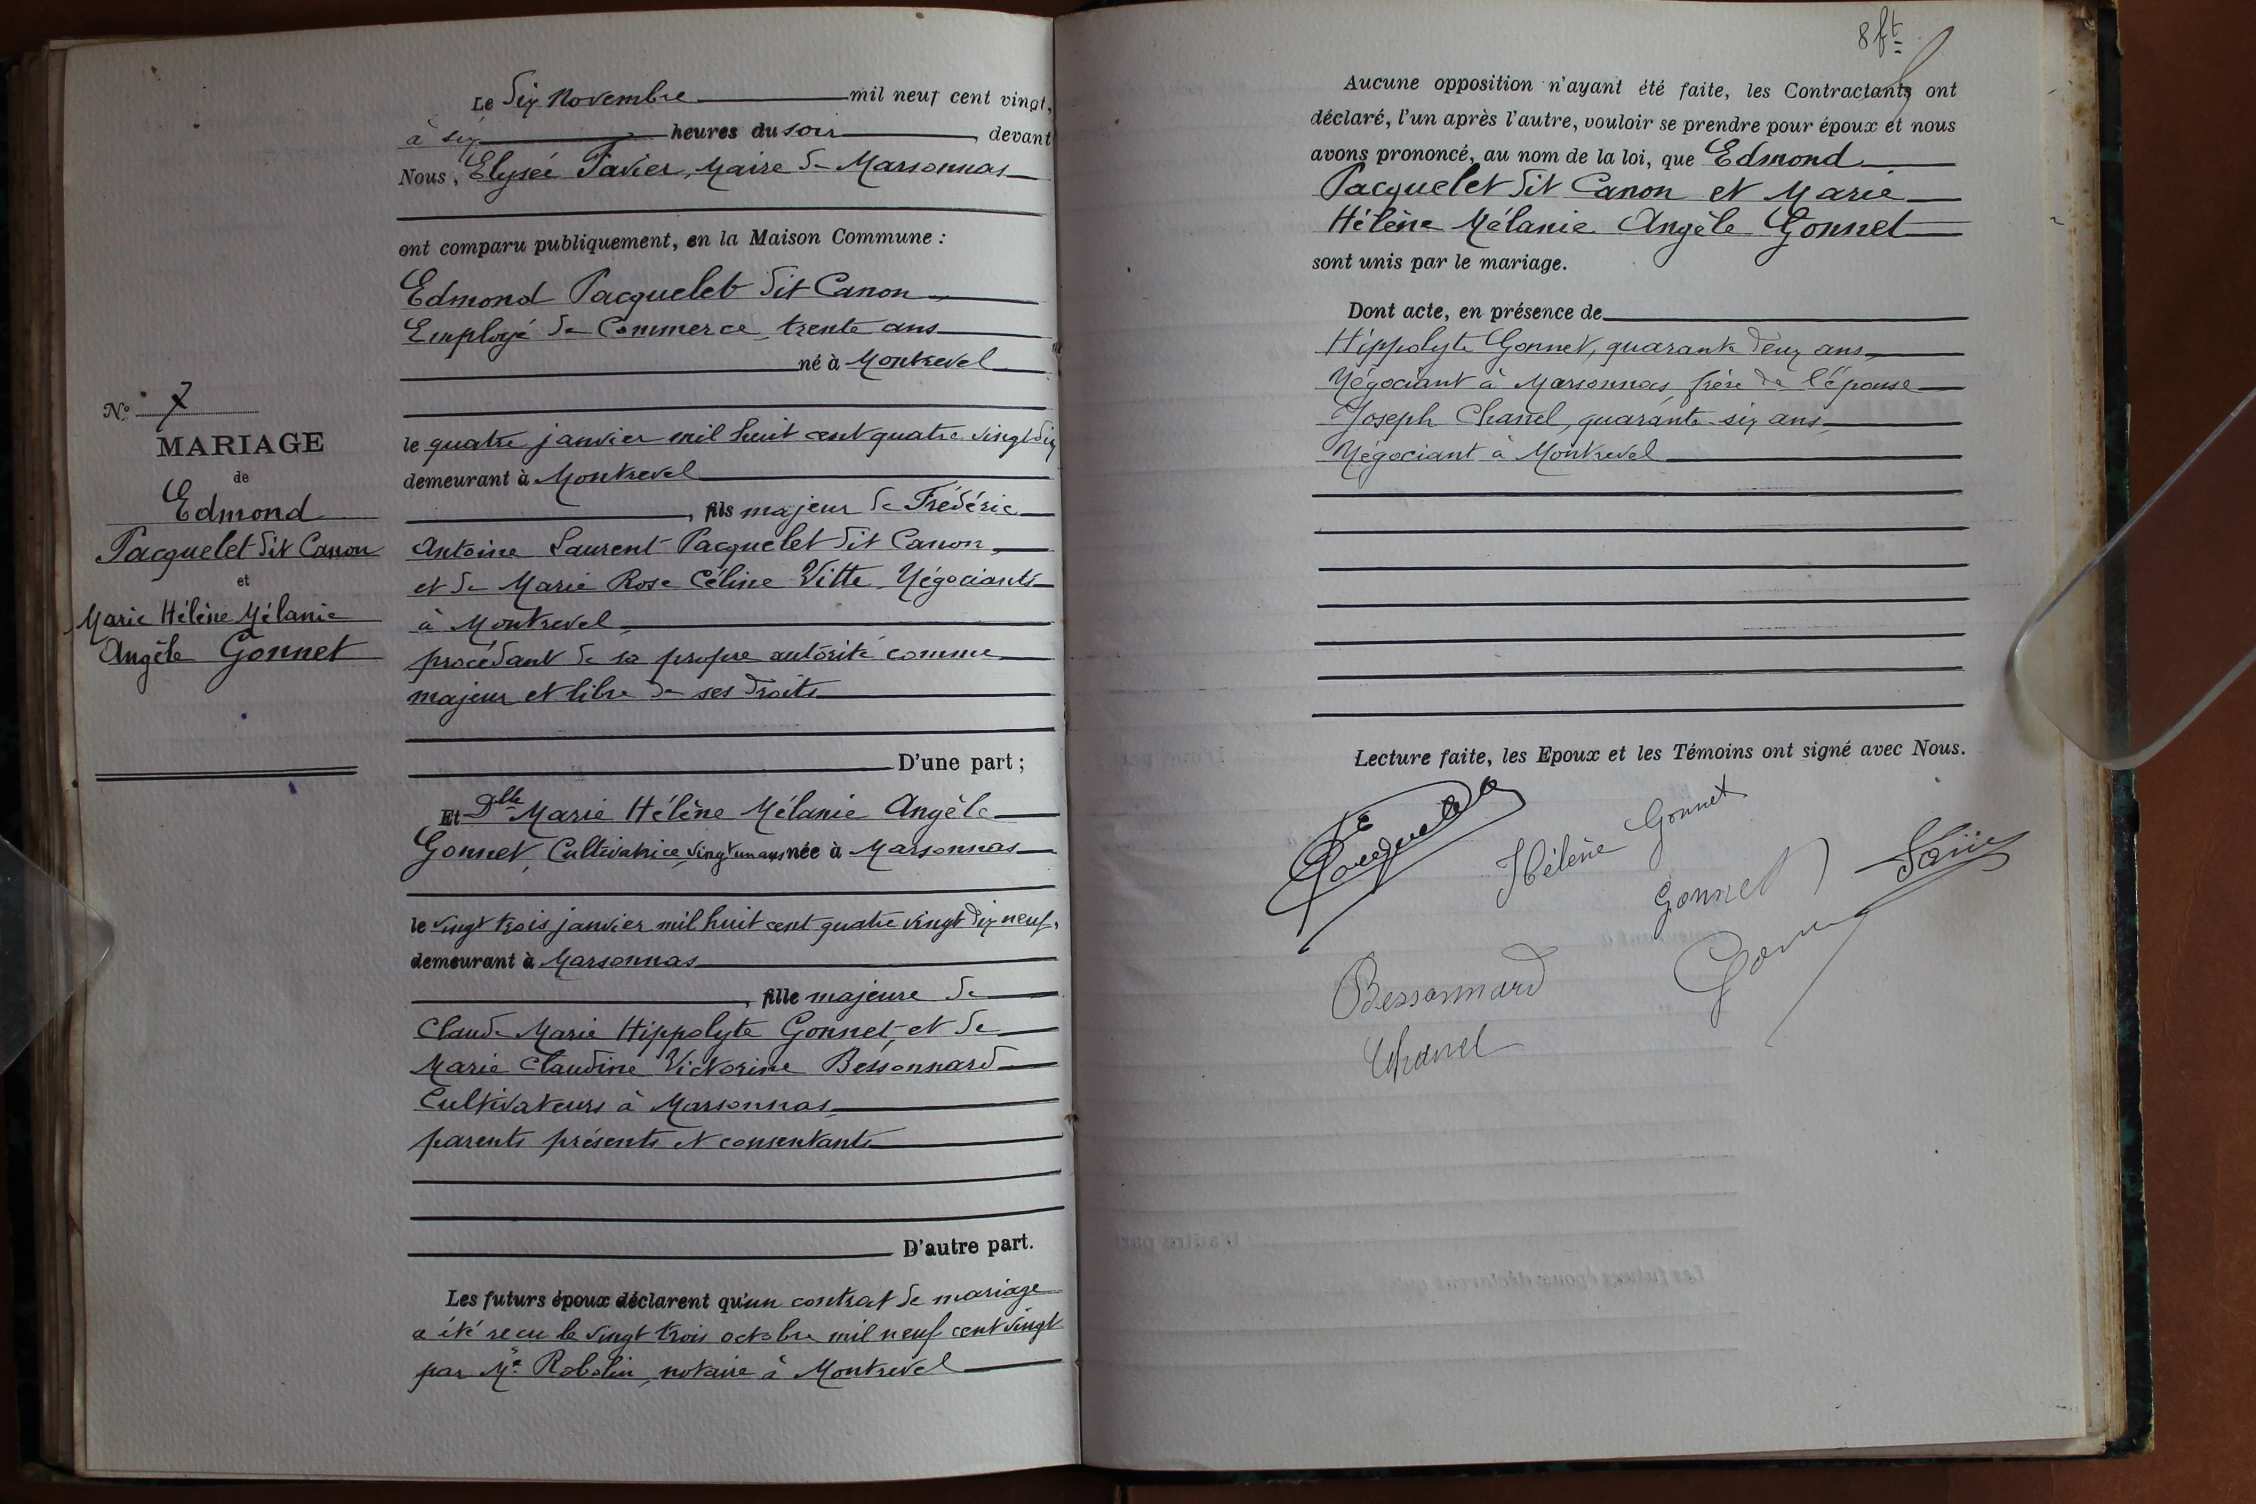 8 ft
Le dix Novembre mil neuf cent vingt,
à six heures du soir, devant
Nous, Elysée Favier, Maire de Marsonnas
ont comparu publiquement, en la Maison Commune :
Edmond Pacquelet dit Canon
Employé de Commerce, trente ans
né à Montrevel
le quatre janvier mil huit cent quatre vingt dix
demeurant à Montrevel
, fils majeur de Frédéric
Antoine Laurent Pacquelet dit Canon,
et de Marie Rose Céline Vitte, Négociants
à Montrevel,
procédant de sa propre autorité comme
majeur et libre de ses droits
D'une part ;
Et Dlle Marie Hélène Mélanie Angèle
Gonnet, Cultivatrice, vingt un ans née à Marsonnas
le vingt trois janvier mil huit cent quatre vingt dix neuf,
demeurant à Marsonnas
, fille majeure de
Claude Marie Hippolyte Gonnet, et de
Marie Claudine Victorine Bessonnard
Cultivateurs à Marsonnas,
parents présents et consentants
D'autre part.
Les futurs époux déclarent qu'un contrat de mariage
a été reçu le vingt trois octobre mil neuf cent vingt
par Me Robelin, notaire à Montrevel
No 7
MARIAGE
de
Edmond
Pacquelet dit Canon
et
Marie Hélène Mélanie
Angèle Gonnet
Aucune opposition n'ayant été faite, les Contractants ont
déclaré, l'un après l'autre, vouloir se prendre pour époux et nous
avons prononcé, au nom de la loi, que Edmond
Pacquelet dit Canon et Marie
Hélène Mélanie Angèle Gonnet
sont unis par le mariage.
Dont acte, en présence de
Hippolyte Gonnet, quarante deux ans,
Négociant à Marsonnas, frère de l'épouse
Joseph Chanel, quarante-six ans,
Négociant à Montrevel
Lecture faite, les Epoux et les Témoins ont signé avec Nous.
E Pacquelet
Hélène Gonnet
Gonnet
Favier
Bessonnard
Gonnet
Chanel